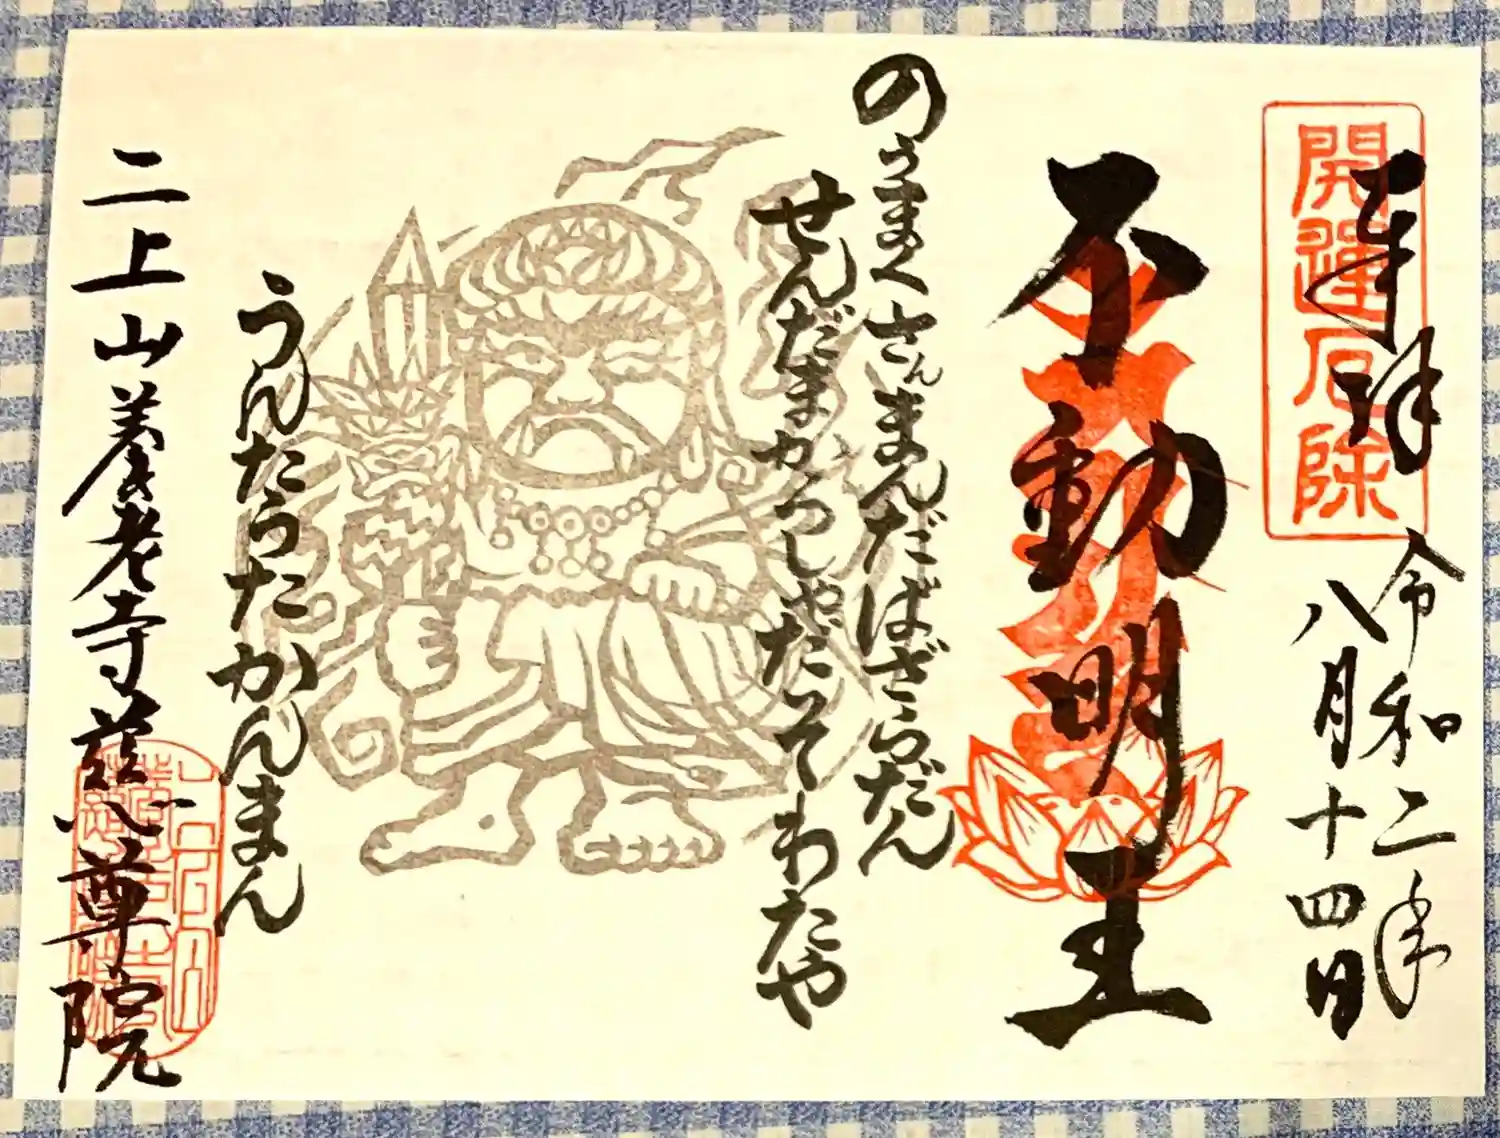 開運厄除
奉拝
令和二年
八月十四日
不動明王
のうまくさんまんだばざらだん
せんだまかろしゃだそわたや
うんたらた かんまん
二上山養老寺慈尊院